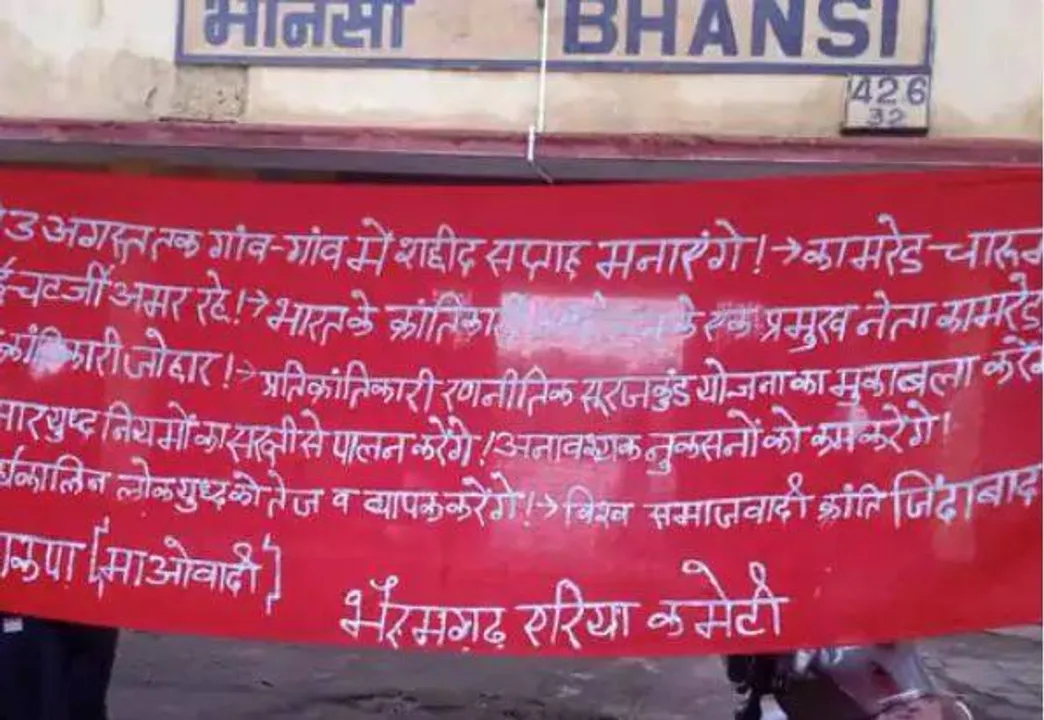 भांनसी BHANSI
426
32
3 अगस्त तक गांव-गांव में शहीद सप्ताह मनाएंगे!→कामरेड-चारू
चटर्जी अमर रहे!→भारत के के एक प्रमुख नेता कामरेड
क्रांतिकारी जोहार!→प्रतिक्रांतिकारी रणनीतिक सूरजकुंड योजना का मुकाबला करेंगे
नियमों का सख्ती से पालन करेंगे!अनावश्यक नुकसनों को कम करेंगे!
लोकयुध्द को तेज व व्यापक करेंगे!→विश्व समाजवादी क्रांति जिंदाबाद
[माओवादी]
भैरमगढ़ एरिया कमेटी